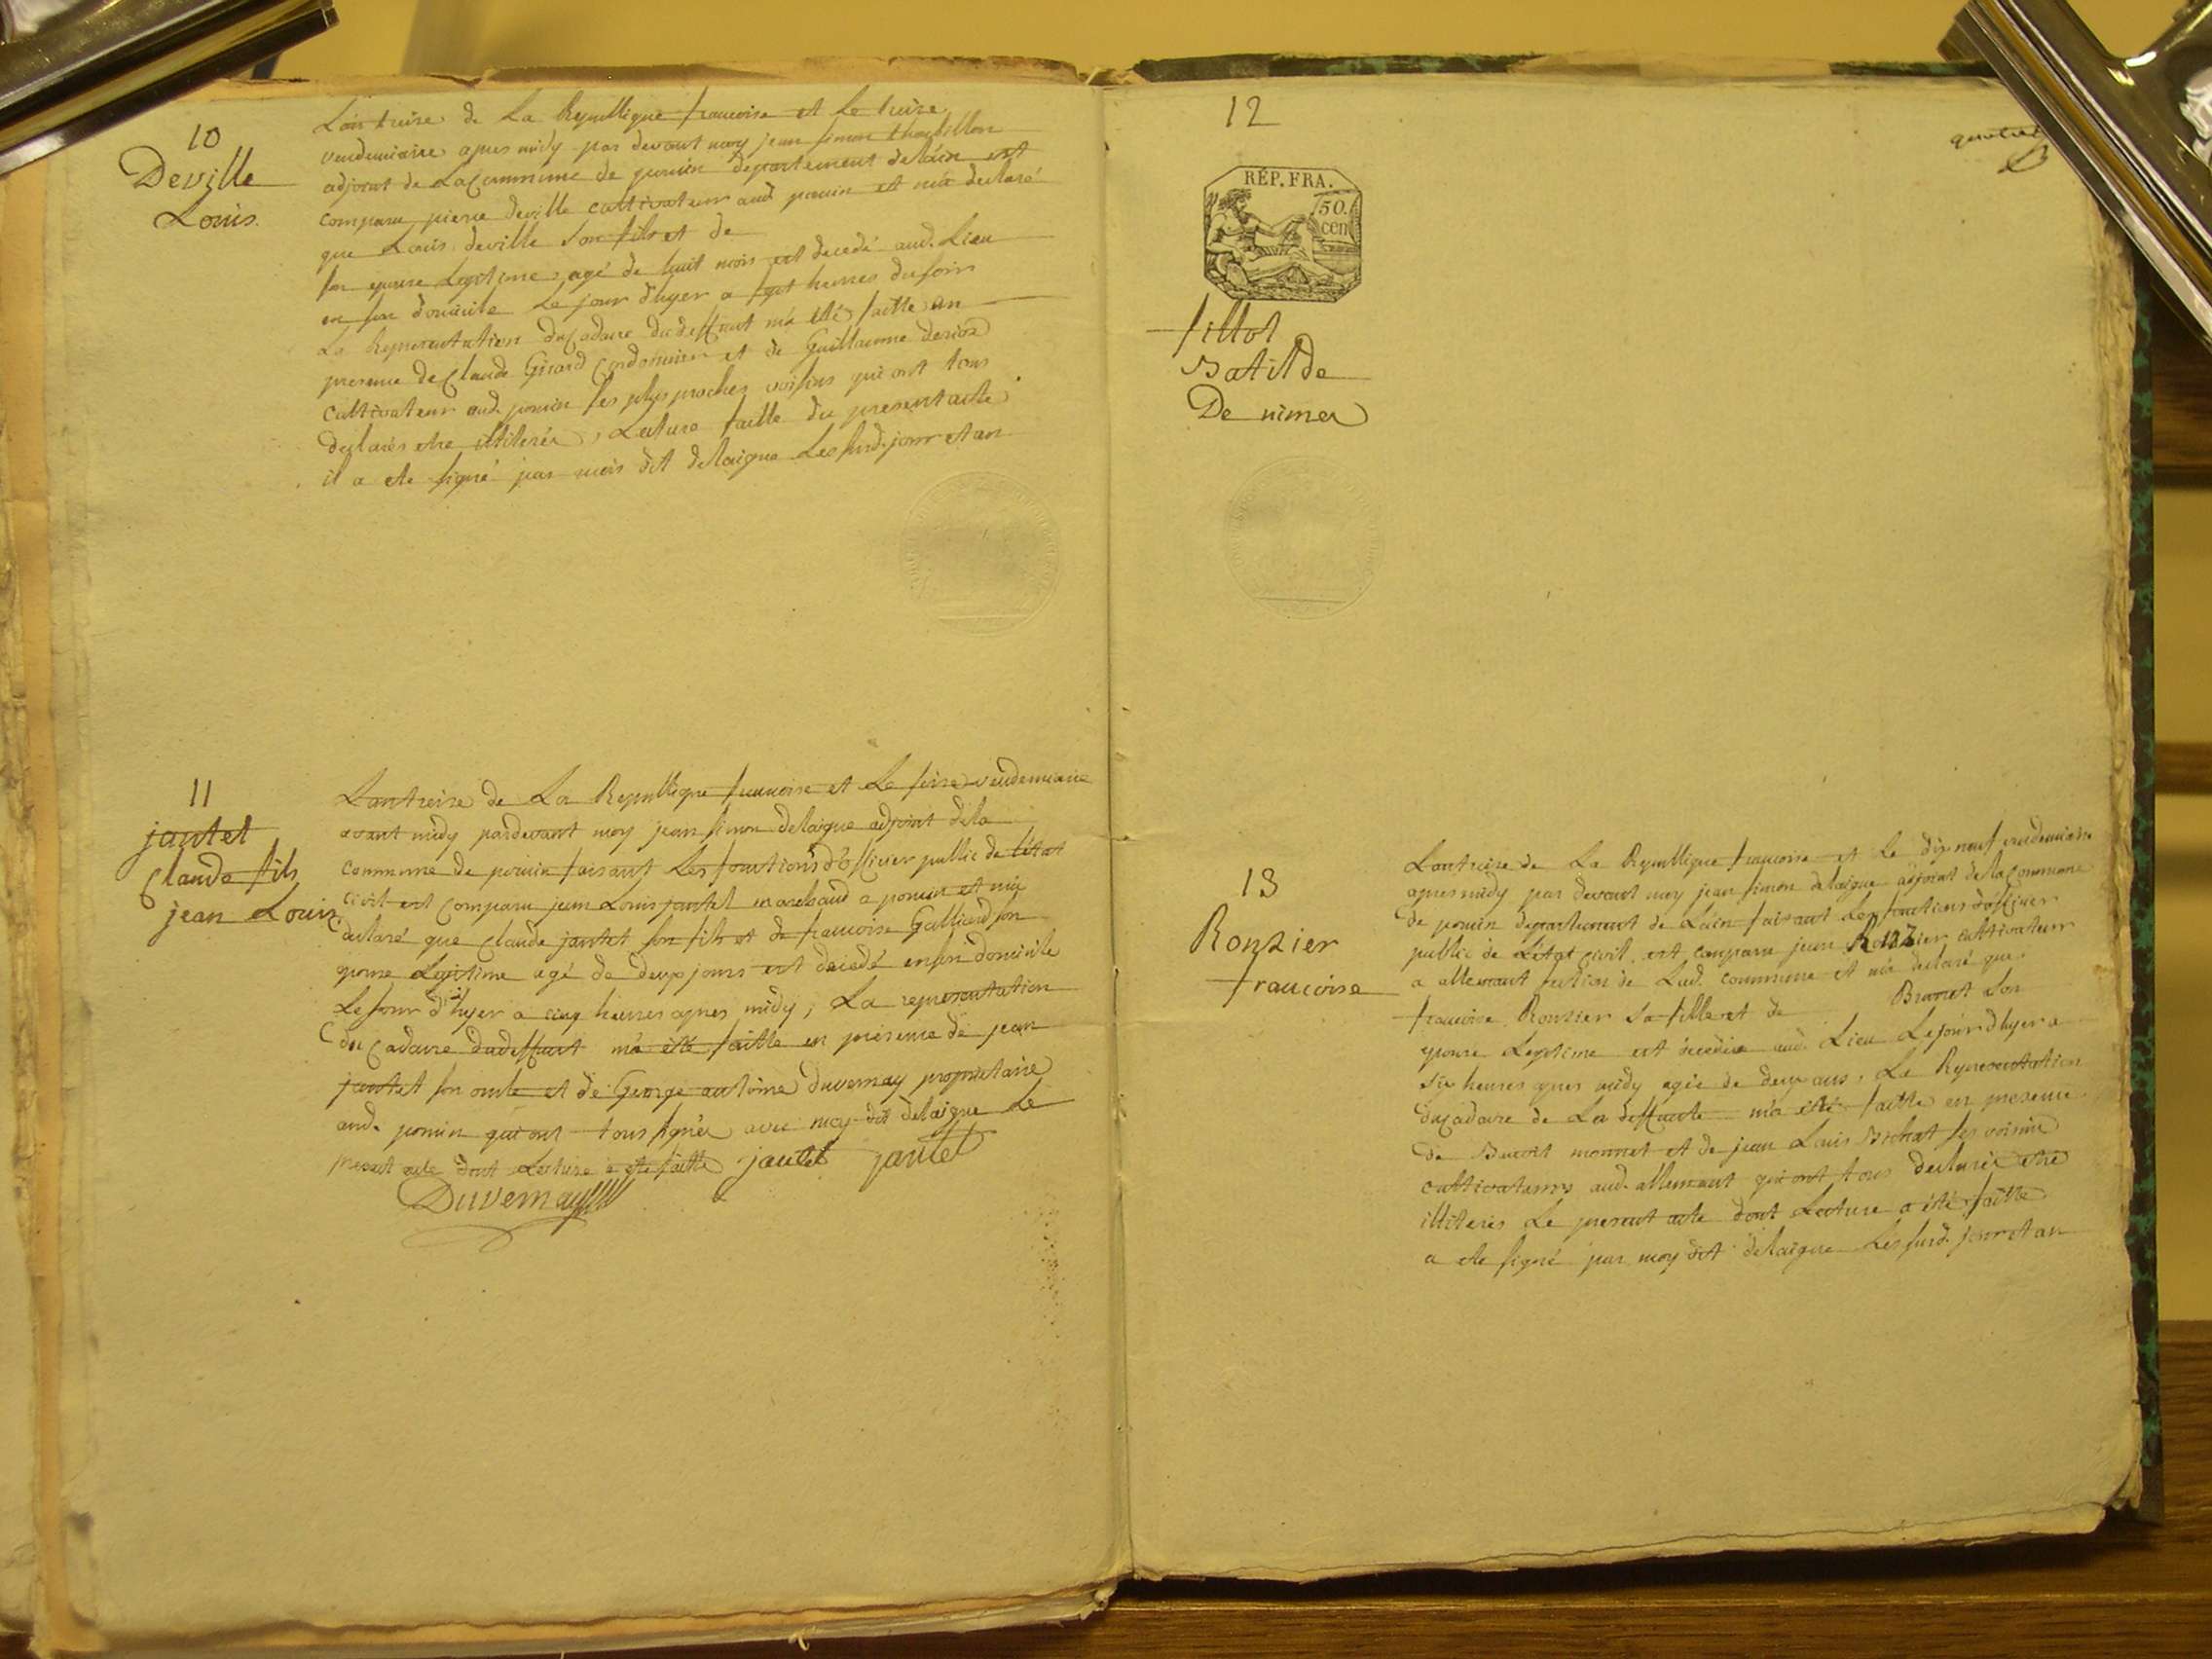 10
Deville
Louis.
L'an treize de La Republique francoise et Le treize
vendemiaire apres midy par devant moy jean simon
adjoint de La Commune de poncin departement de lain est
comparu pierre deville cultivateur aud. poncin et m'a declaré
que Louis deville son fils et de
son epouse Legitime, agé de huit mois est decedé aud. Lieu
en son domicile Le jour d'hyer a sept heures du soir
La Representation du Cadavre du deffunt m'a été faitte en
presence de Claude Girard Cordonnier et de Guillaume
cultivateur aud. poncin ses plus proches voisins qui ont tous
declarés etre illiterés, Lecture faitte du present acte
il a ete signé par mois dit delaigue Les susd. jour et an
11
jantet
Claude fils
jean Louis
L'an treize de La Republique francoise et Le seize vendemiaire
avant midy pardevant moy jean simon delaigue adjoint de la
commune de poncin faisant Les fonctions d'officier public de l'état
civil est comparu jean Louis jantet marchand a poncin et m'a
declaré que Claude jantet son fils et de francoise Galliard son
epouse Legitime agé de deux jours est decedé en son domicile
Le jour d'hyer a cinq heures apres midy, La representation
du Cadavre dudeffunt m'a été faitte en presence de jean
jantet son oncle et de George antoine duvernay proprietaire
aud. poncin qui ont tous signés avec moy dit delaigue Le
present acte dont Lecture a ete faitte jantet jantet
Duvernay
12
RÉP. FRA.
50.
cen
fillot
Batilde
De nimes
13
Ronzier
francoise
L'an treize de La Republique francoise et Le dix neuf vendemiaire
apres midy par devant moy jean simon delaigue adjoint de la Commune
de poncin departement de Lain faisant Les fonctions d'officier
public de L'etat civil, est comparu jean Ronzier cultivateur
a allement section de Lad. commune et m'a declaré que
francoise Ronzier sa fille et de Brunet son
epouse Legitime est decedée aud. Lieu Le jour d'hyer a
six heures apres midy agée de deux ans, La Representation
du Cadavre de La deffunte m'a été faitte en presence
de Benoit monnet et de jean Louis Bichat ses voisins
cultivateurs aud. allement qui ont tous declarés etre
illiterés Le present acte dont Lecture a été faitte
a ete signé par moy dit delaigue Les susd. jour et an